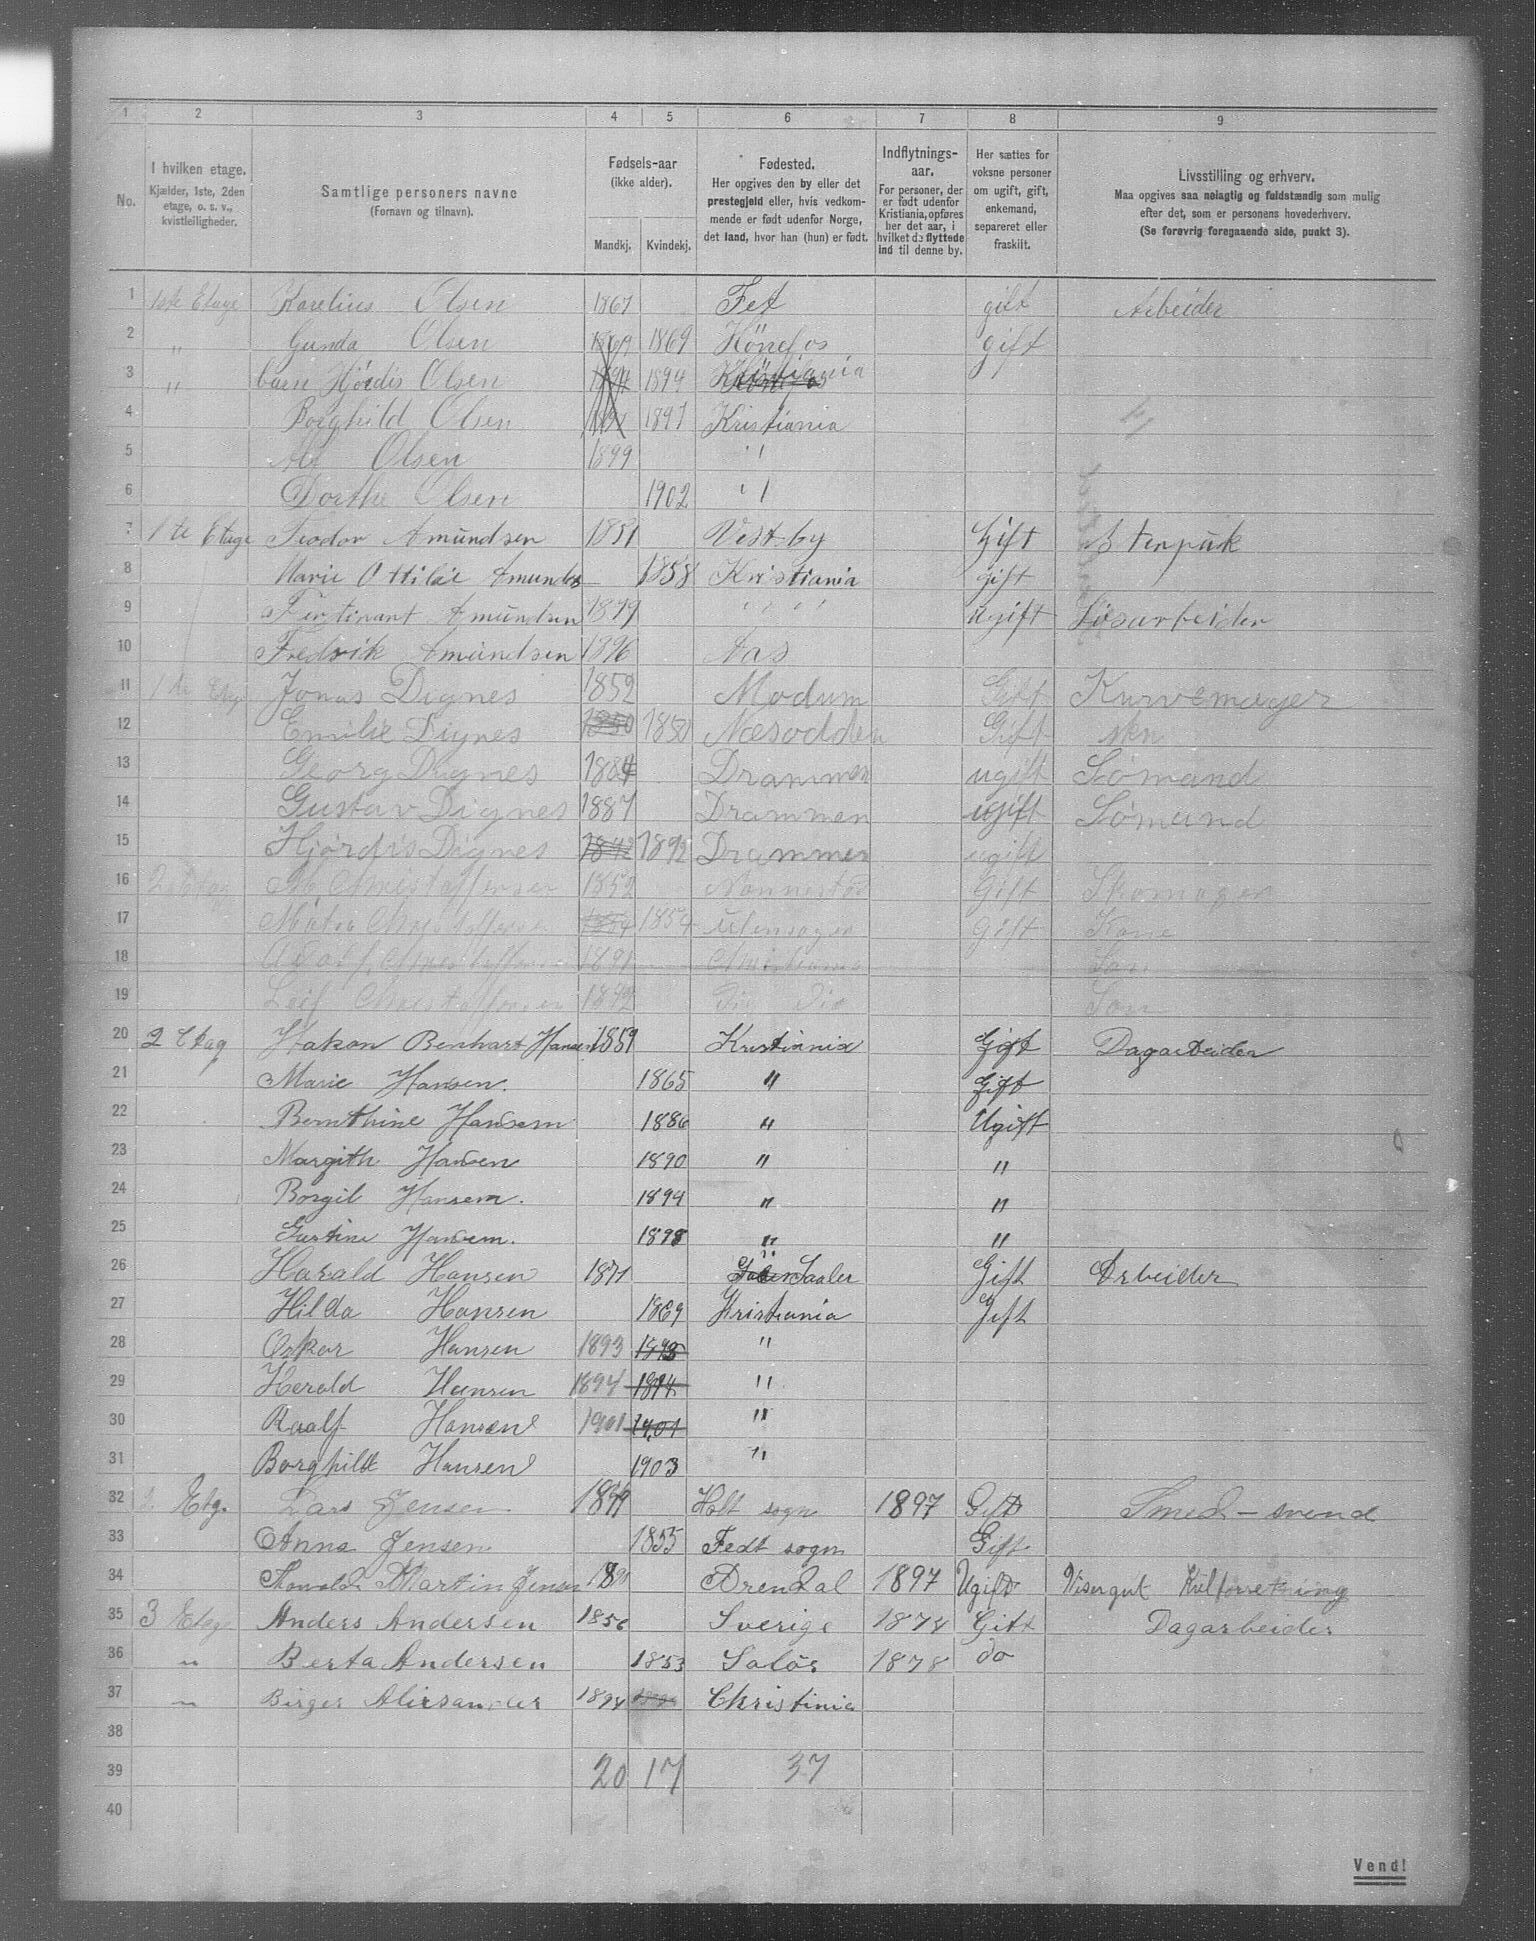 1 2 3 4 5 6 7 8 9
No.
I hvilken etage.
Kjælder, 1ste, 2den
etage, o. s. v.,
kvistleiligheder.
Samtlige personers navne
(Fornavn og tilnavn).
Fødsels-aar
(ikke alder).
Mandkj. Kvindekj.
Fødested.
Her opgives den by eller det
prestegjeld eller, hvis vedkom-
mende er født udenfor Norge,
det land, hvor han (hun) er født.
Indflytnings-
aar.
For personer, der
er født udenfor
Kristiania, opføres
her det aar, i
hvilket de flyttede
ind til denne by.
Her sættes for
voksne personer
om ugift, gift,
enkemand,
separeret eller
fraskilt.
Livsstilling og erhverv.
Maa opgives saa nøiagtig og fuldstændig som mulig
efter det, som er personens hovederhverv.
(Se forøvrig foregaaende side, punkt 3).
1 1ste Etage Karelius Olsen 1867 Fet gift Arbeider
2 " Gunda Olsen 1869 1869 Hönefos gift
3 " barn Hjördis Olsen 1894 1894 Kristiania
4 Borghild Olsen 1897 1897 Kristiania
5 Olsen 1899 "
6 Dorthe Olsen 1902 "
7 1te Etage Teodor Amundsen 1851 Vestby Gift
8 Marie Ottilie Amunds 1858 Kristiania gift
9 Fertinant Amundsen 1879 " " ugift Lösarbeider
10 Fredrik Amundsen 1896 Aas
11 1te Etage Jonas Dignes 1852 Modum Gift Kurvemager
12 Emilie Dignes 1850 1850 Næsodden Gift
13 Georg Dignes 1884 Drammen ugift Sømand
14 Gustav Dignes 1887 Drammen ugift Sømand
15 Hjørdis Dignes 1892 1892 Drammen ugift
16 2 Etag Christoffersen 1852 Nannestad Gift Skomager
17 Christoffersen 1854 1854 Ullensager Gift Kone
18 Adolf Christoffersen 1891 Christiania Søn
19 Leif Christoffersen 1892 Dio Dio Søn
20 2 Etag Hakon Benhart Hansen 1859 Kristiania Gift Dagarbeider
21 Marie Hansen. 1865 " Gift
22 Bernthine Hansem 1886 " Ugift
23 Margith Hansen 1890 " "
24 Borgil Hansem. 1894 " "
25 Gustine Hansem. 1898 " "
26 Harald Hansen 1871 Saaler Gift Arbeider
27 Hilda Hansen 1869 Kristiania Gift
28 Oskar Hansen 1893 1893 "
29 Herald Hansen 1894 1894 "
30 Raalf Hansen 1901 1901 "
31 Borghild Hansen 1903 "
32 Etg. Lars Jensen 1849 Holt sogn 1897 Gift Smed-svend
33 Anna Jensen 1855 Fedt sogn Gift
34 Martin Jensen 1890 Arendal 1897 Ugift Visergut
35 3 Etage Anders Andersen 1856 Sverige 1878 Gift Dagarbeider
36 " Berta Andersen 1853 Solör 1878 do
37 " Birger 1894 Christinia
38
39 20 17 37
40
Vend!